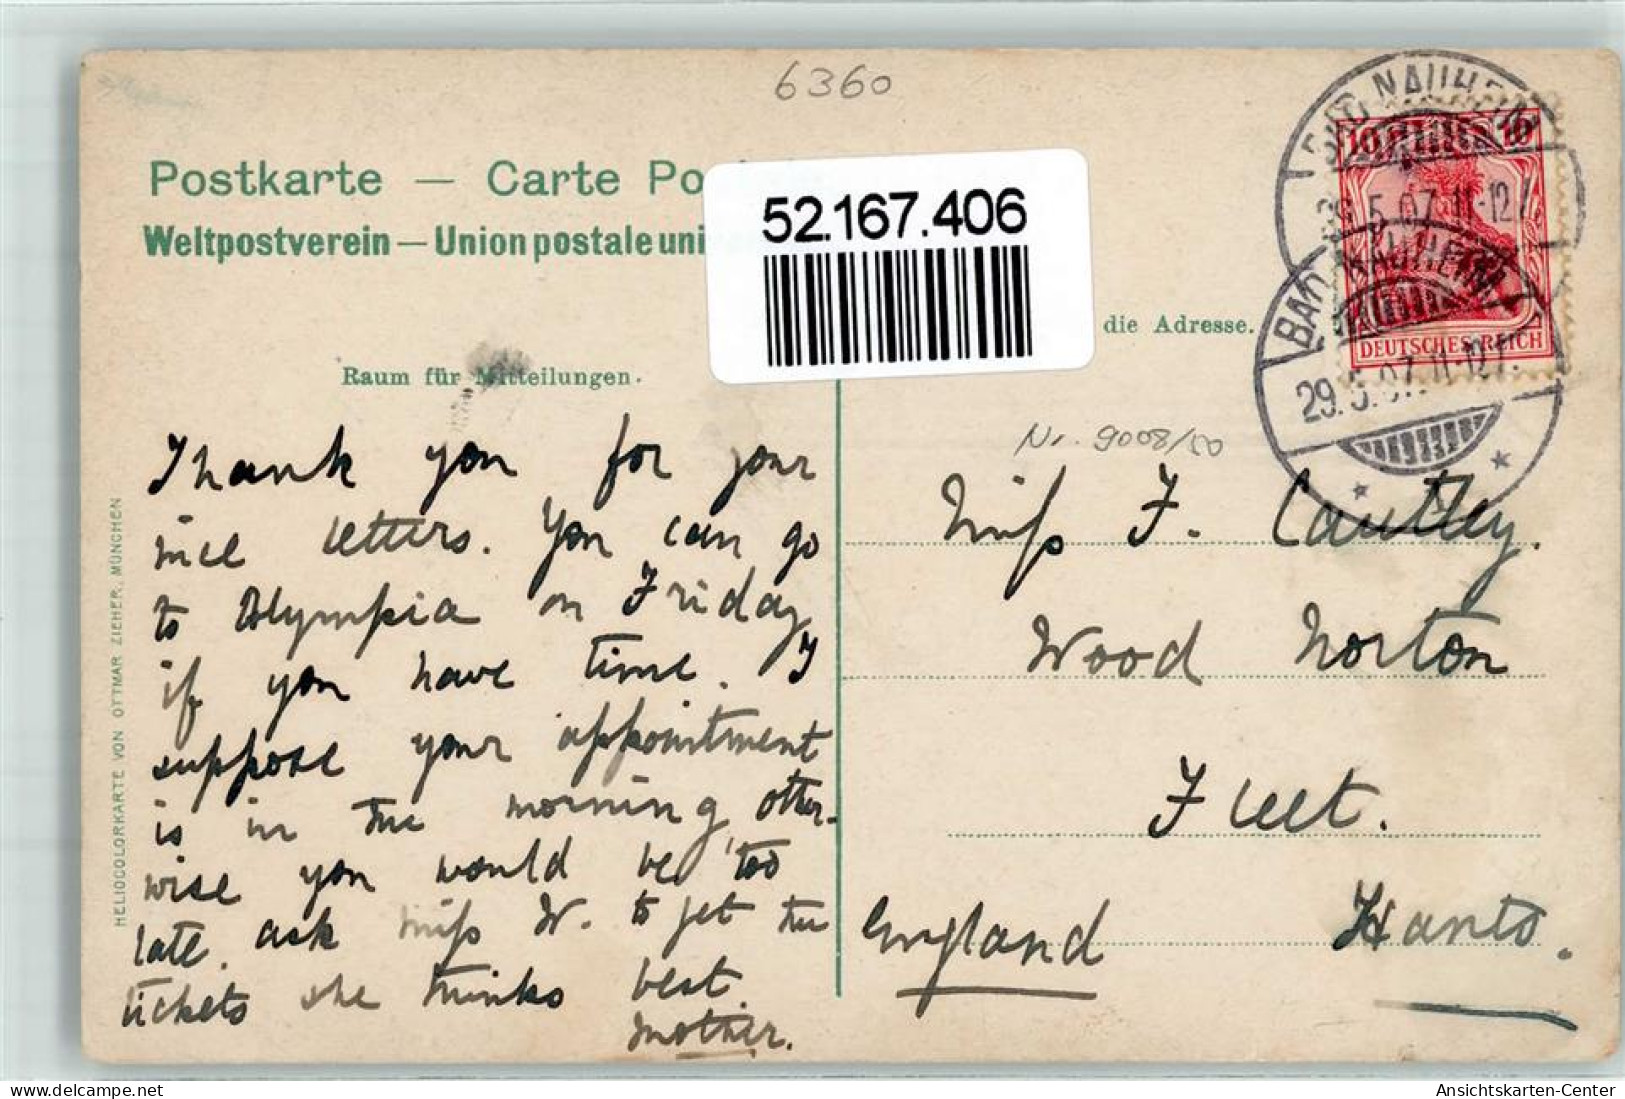 6360
Postkarte — Carte Po
Weltpostverein — Union postale uni
52.167.406
die Adresse.
Raum für Mitteilungen.
BAD NAUHEIM
29.5.07.11-12V.
10 10
DEUTSCHES REICH
BAD NAUHEIM
29.5.07.11-12V.
Nr. 9008/50
Thank you for your
nice letters. You can go
to Olympia on Friday
if you have time. I
suppose your appointment
is in the morning, other-
wise you would be too
late. ask Miss W. to get the
tickets she thinks best.
Mother.
Miss F. Cautley.
Wood Norton
Fleet.
Hants.
England
HELIOCOLORKARTE VON OTTMAR ZIEHER, MÜNCHEN
Ansichtskarten-Center
https://www.delcampe.net